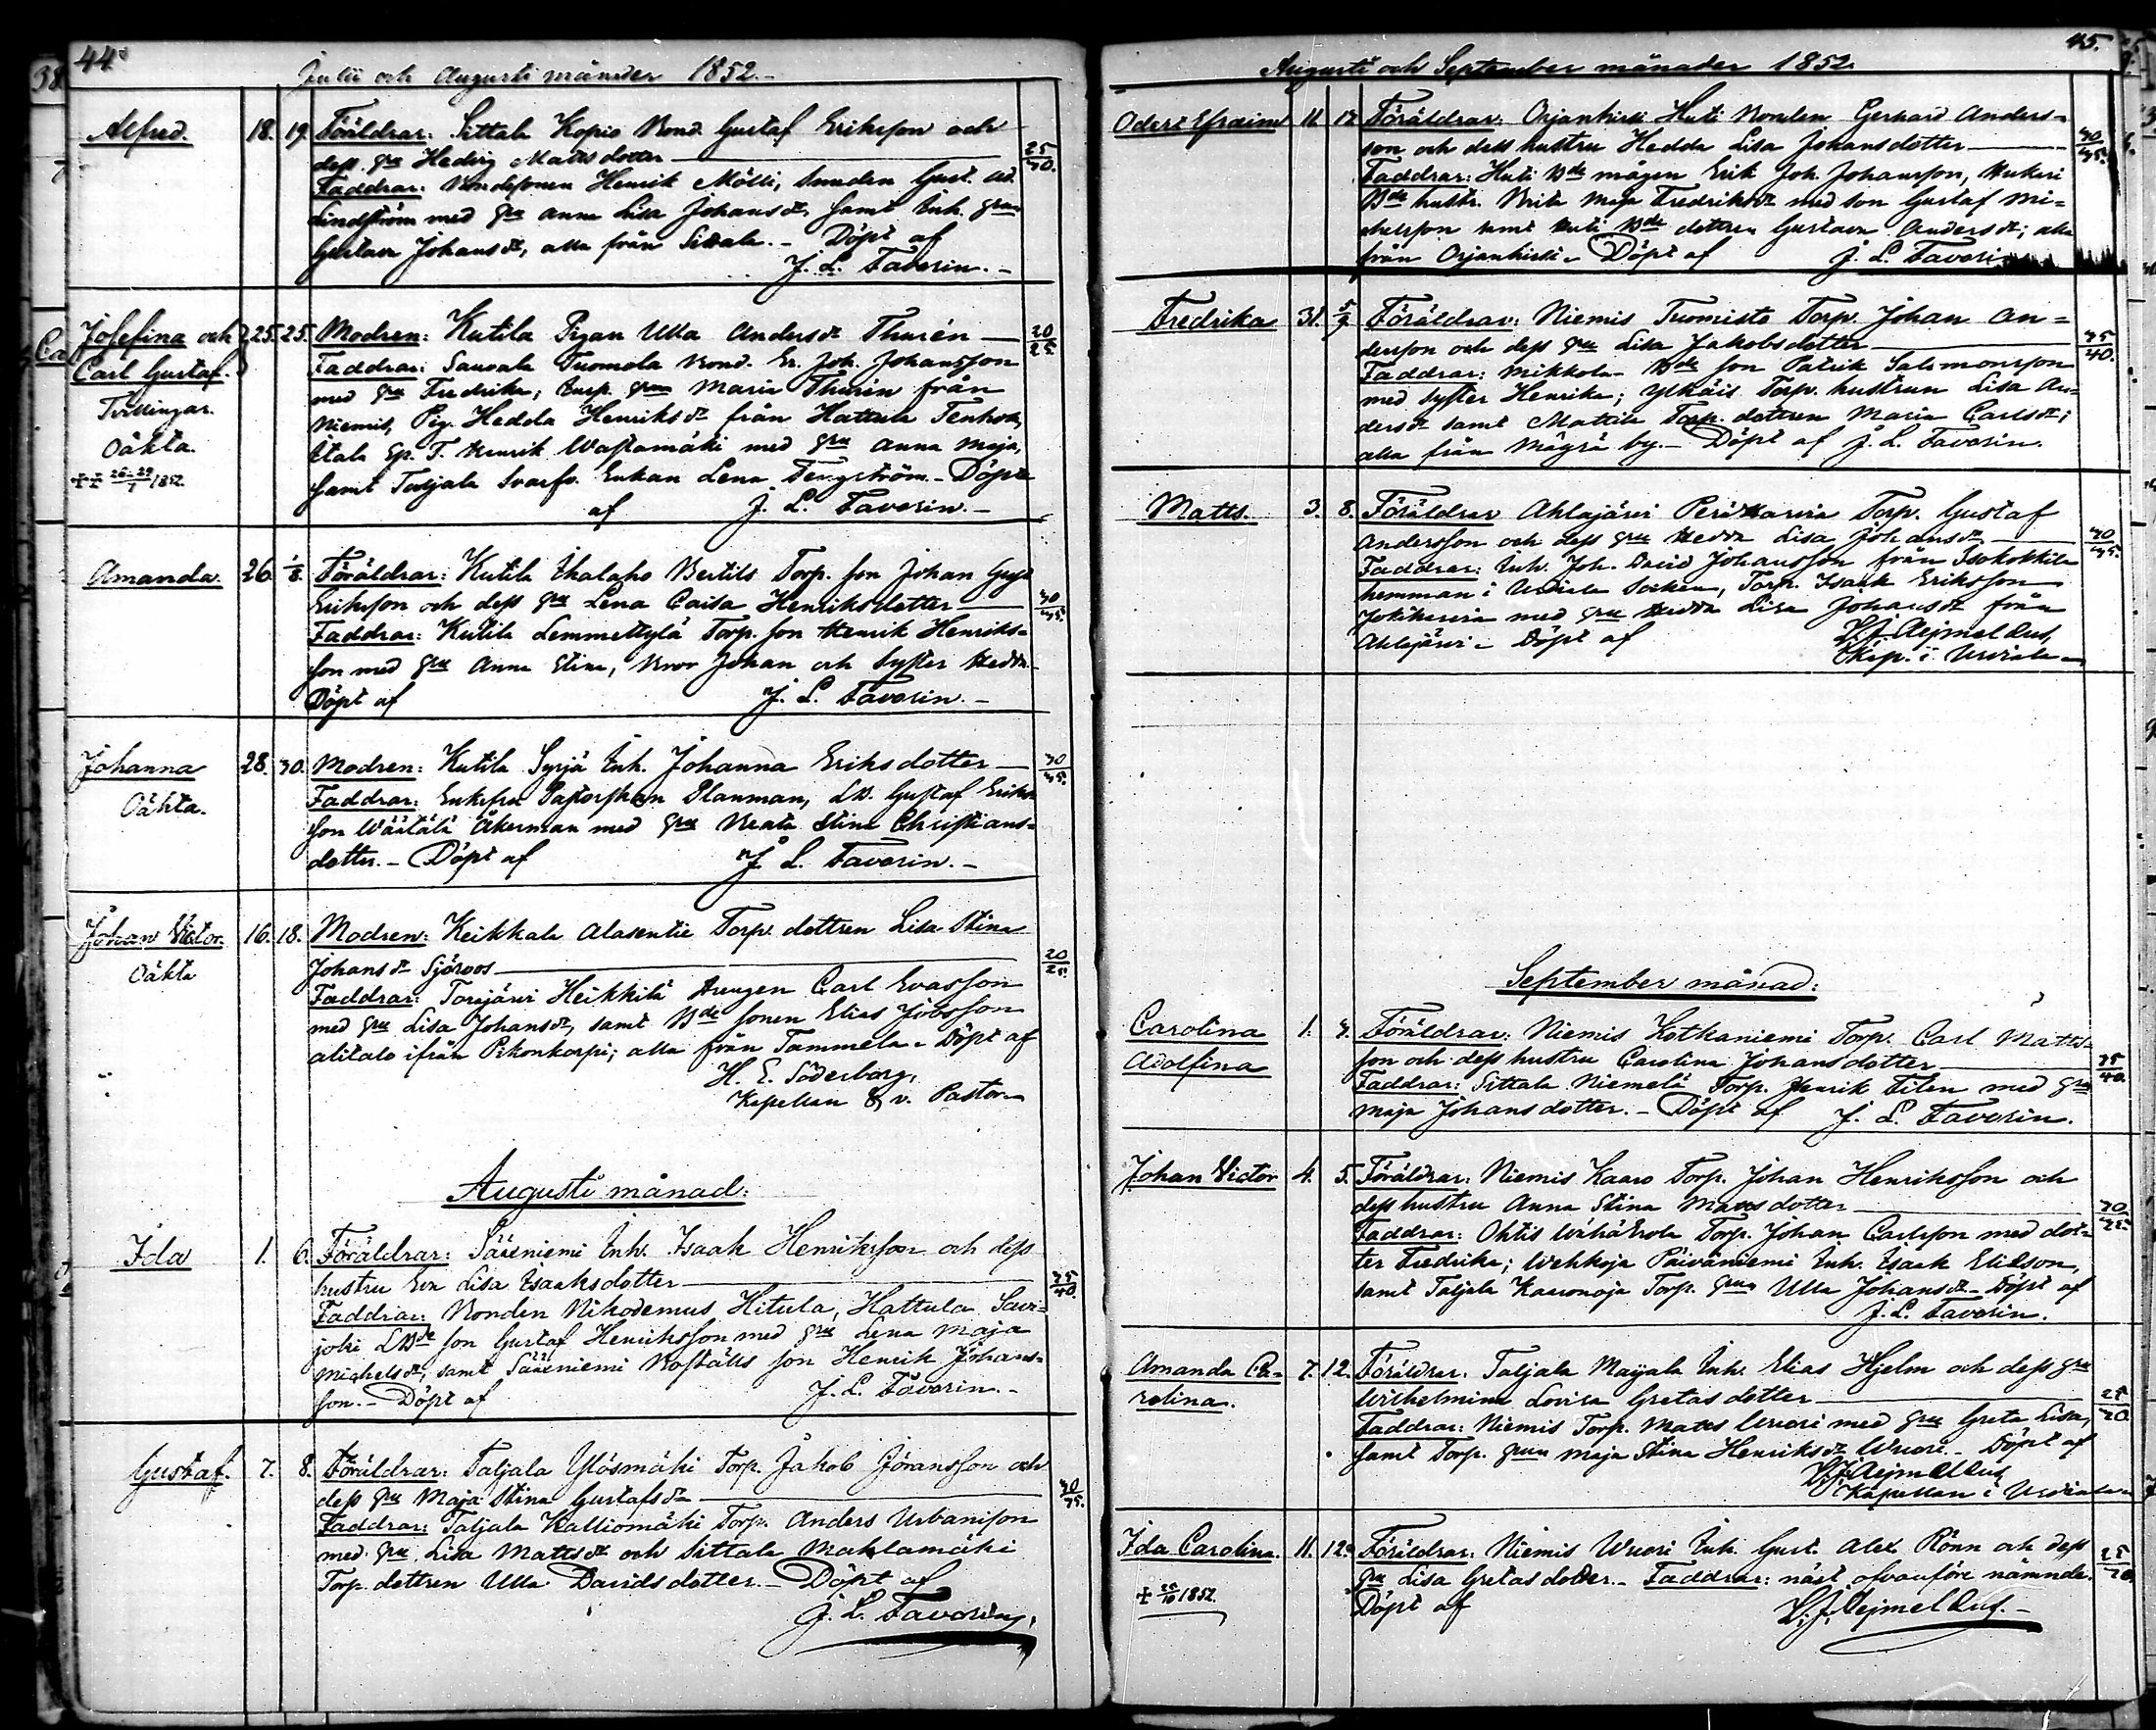 44.
Julii och Augusti månader 1852.
Alfred. 18. 19. Föräldrar: Sittala Kopio Bond. Gustaf Eriksson och
dess hu Hedvig Mattsdotter 25/30.
Faddrar: Bondesonen Henrik Mölli, Smeden Gust. Ad.
Lindström med hu Anna Lisa Johansdr, samt Inh.
Gustava Johansdr, alla från Sittala. - Döpt af
J. L. Faverin. -
Josefina och 25. 25. Modren: Kutila Pigan Ulla Andersdr Thurén 20/25.
Carl Gustaf. Faddrar: Sauvala Tuomola Bond. Er. Joh. Johansson
Tvillingar. med hu Fredrika; Torp. Maria Thurén från
Oäkta. Niemis, Pig. Hedda Henriksdr från Hattula
Itala Henrik Wastamäki med hu Anna Maja,
1852. samt Taljala Enkan Lena Tengström. - Döpte
af J. L. Faverin. -
Amanda. 26. 1/8. Föräldrar: Kutila Ikalaho Bertils Torp. son Johan Gust.
Eriksson och dess hu Lena Caisa Henriksdotter 40/45.
Faddrar: Kutila Lemmettylä Torp. son Henrik Henriks-
son med hu Anna Stina, Bror Johan och Syster Hedda.
Döpt af J. L. Faverin. -
Johanna 28. 30. Modren: Kutila Syrjä Inh. Johanna Eriksdotter 40/45.
Oäkta. Faddrar: Enkefru Pastorskan Planman, LB. Gustaf Eriks-
son Wäätälä Åkerman med hu Beata Stina Christians-
dotter. - Döpt af J. L. Faverin. -
Johan Victor. 16. 18. Modren: Keikkala Alasentie Torp. dottren Lisa Stina
Oäkta Johansdr Sjöroos 20/25.
Faddrar: Torajärvi Heikkilä Drengen Carl Evasson
med hu Lisa Johansdr, samt Bde sonen Elias Jöbsson
Alitalo ifrån Pikonkorpi; alla från Tammela. Döpt af
H. E. Söderborg,
Kapellan & v. Pastor.
Augusti månad.
Ida 1. 6. Föräldrar: Sääxniemi Inh. Isaak Henriksson och dess
hustru Eva Lisa Isaaksdotter 35/40.
Faddrar: Bonden Nikodemus Hitula, Hattula Savi-
joki LBde son Gustaf Henriksson med hu Lena Maja
Michelsdr, samt Sääxniemi son Henrik Johans-
son. - Döpt af J. L. Faverin. -
Gustaf. 7. 8. Föräldrar: Taljala Ylösmäki Torp. Jakob Jöransson och
dess hu Maja Stina Gustafsdr
Faddrar: Taljala Kalliomäki Torp. Anders Urbansson
med hu Lisa Mattsdr och Sittala Mahlamäki
Torp. dottren Ulla Davidsdotter. - Döpt af
J. L. Faverin.
45.
Augusti och September månader 1852.
Efraim 11. 12 Föräldrar: Orjanhirsi Huti Bonden Gerhard Anders-
son och dess hustru Hedda Lisa Johansdotter 40/45.
Faddrar: Huti Bde mågen Erik Joh. Johansson,
Bde hustr. Brita Maja Fredriksdr med son Gustaf Mi-
chelsson samt Huti Bde dottren Gustava Andersdr; alla
från Orjanhirsi. Döpt af J. L. Faverin
Fredrika 31. 5/9 Föräldrar: Niemis Tuomisto Torp. Johan An-
dersson och dess hu Lisa Jakobsdotter 35/40.
Faddrar: Mikkola Bde son Patrik Salomonsson
med Syster Henrika; Torp. hustrun Lisa An-
dersdr samt Mattila Torp. dottren Maria Carlsdr;
alla från Mägrä by. - Döpt af J. L. Faverin.
Matts. 3. 8. Föräldrar Ahlajärvi Torp. Gustaf
Andersson och dess hu Hedda Lisa Johansdr, 40/45.
Faddrar: Inh. Joh. David Johansson från
hemman i Urdiala Socken, Torp. Isaak Eriksson
med hu Hedda Lisa Johansdr från
Ahlajärvi. Döpt af H. J. Aejmelæus,
Kap. i Urdiala
September månad:
Carolina 1. 4. Föräldrar: Niemis Kotkaniemi Torp. Carl Matts-
Adolfina son och dess hustru Carolina Johansdotter 35/40.
Faddrar: Sittala Niemelä Torp. Henrik med hu
Maja Johansdotter. - Döpt af J. L. Faverin.
Johan Victor 4. 5. Föräldrar: Niemis Kaaro Torp. Johan Henriksson och
dess hustru Anna Stina Mattsdotter
Faddrar: Ohtis Torp. Johan Carlsson med dot-
ter Fredrika; Wehkoja Päiväniemi Inh. Isaak Eliasson,
samt Taljala Kaaronoja Torp. Ulla Johansdr. Döpt af
J. L. Faverin.
Amanda Ca- 7. 12. Föräldrar: Taljala Maijala Inh. Elias Hjelm och dess hu
rolina. Wilhelmina Lovisa Gretasdotter
Faddrar: Niemis Torp. Matts Wuori med hu Greta Lisa,
samt Torp. Maja Stina Henriksdr Wuori. - Döpt af
H. J. Aejmelæus,
Kapellan i Urdiala
Ida Carolina. 11. 12. Föräldrar: Niemis Wuori Inh. Gust. Alex Rönn och dess
hu Lisa Gretasdotter. - Faddrar: näst ofvanföre nämnde.
1852. Döpt af H. J. Aejmelæus. -